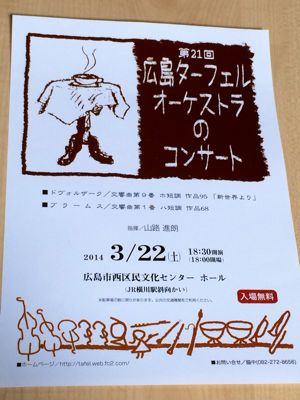 第21回
広島ターフェル
オーケストラ
の
コンサート
■ドヴォルザーク／交響曲第9番 ホ短調 作品95 「新世界より」
■ブラームス／交響曲第1番 ハ短調 作品68
指揮／山路 進朗
2014 3/22(土) 18:30開演
(18:00開場)
広島市西区民文化センター ホール
(JR横川駅斜向かい)
入場無料
■ホームページ／http://tafel.web.fc2.com/
■お問い合せ／脇中(082-272-8656)